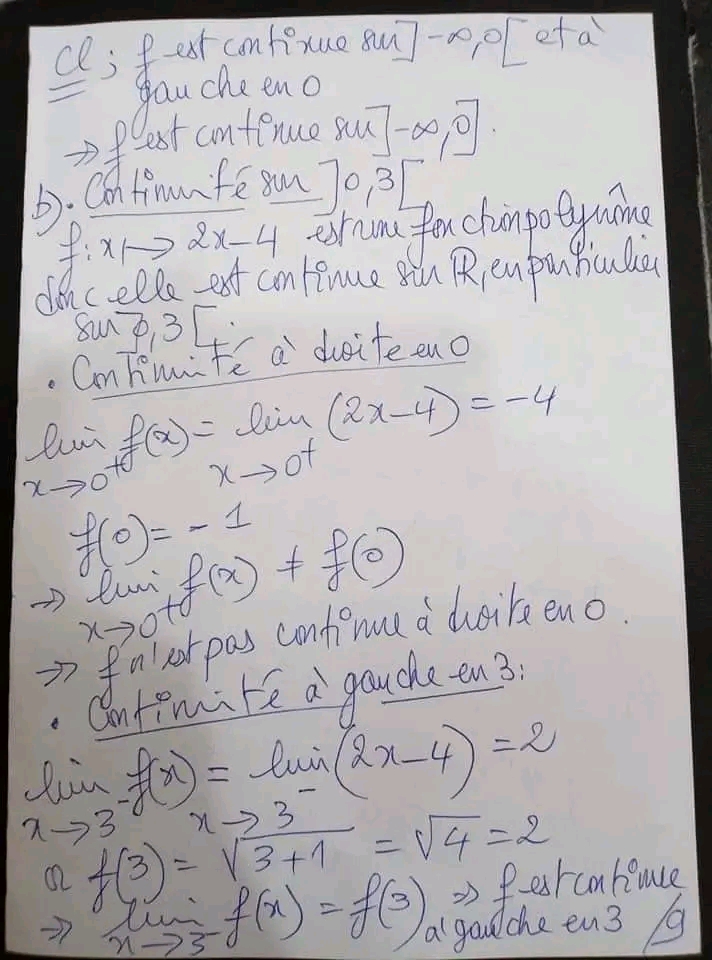 Cl ; f est continue sur ]-∞,0[ et à
gauche en 0
⇒ f est continue sur ]-∞,0].
b). Continuité sur ]0,3[
f: x ↦ 2x-4 est une fonction polynôme
donc elle est continue sur ℝ, en particulier
sur ]0,3[.
• Continuité à droite en 0
lim f(x) = lim (2x-4) = -4
x→0⁺ x→0⁺
f(0) = -1
⇒ lim f(x) ≠ f(0)
x→0⁺
⇒ f n'est pas continue à droite en 0.
• Continuité à gauche en 3:
lim f(x) = lim (2x-4) = 2
x→3⁻ x→3⁻
or f(3) = √(3+1) = √4 = 2
⇒ lim f(x) = f(3) ⇒ f est continue
x→3⁻ à gauche en 3 /9